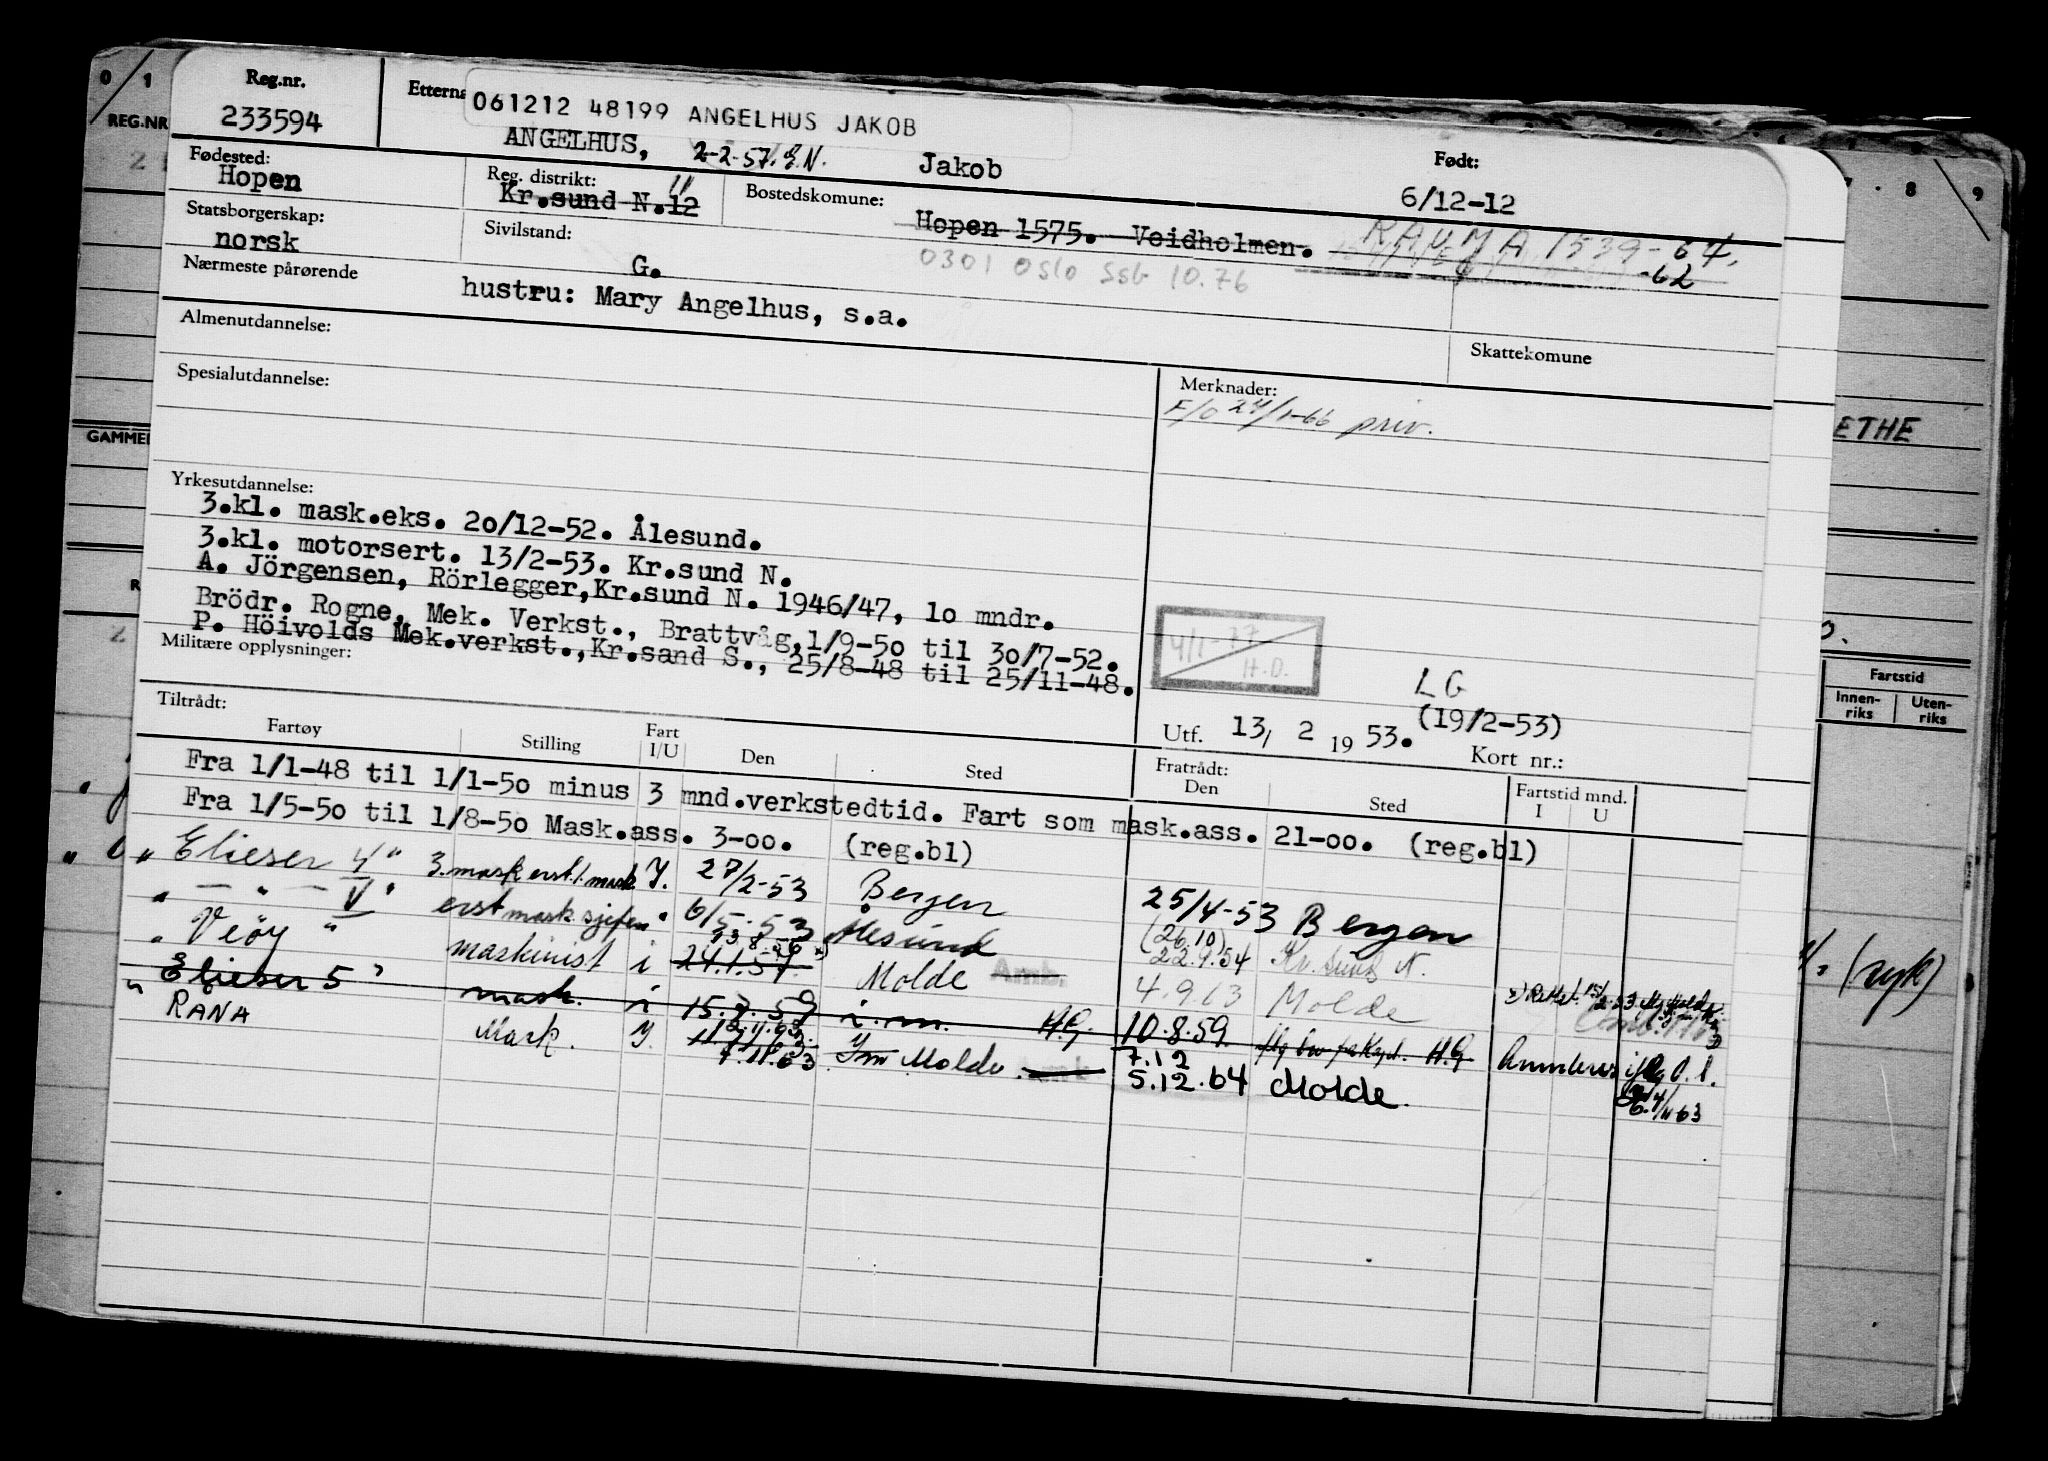 0 1
REG.NR
Reg.nr.
233594
Etterna
061212 48199 ANGELHUS JAKOB
ANGELHUS, 2-2-57. Jakob
Født:
6/12-12
7 . 8 9
Fødested:
Hopen
Reg. distrikt: 11
Kr.sund N.12
Bostedskomune:
Hopen 1575. Veidholmen. RAUMA 1539-64.
-62
0301 Oslo Ssb 10.76
Statsborgerskap:
norsk
Sivilstand:
G.
Nærmeste pårørende
hustru: Mary Angelhus, s.a.
Almenutdannelse:
Skattekomune
Spesialutdannelse:
Merknader:
F/O 24/1-66 priv.
GAMMEL
ETHE
Yrkesutdannelse:
3.kl. mask.eks. 20/12-52. Ålesund.
3.kl. motorsert. 13/2-53. Kr.sund N.
A. Jörgensen, Rörlegger,Kr.sund N. 1946/47, 10 mndr.
Brödr. Rogne, Mek. Verkst., Brattvåg,1/9-50 til 30/7-52.
P. Höivolds Mek.verkst.,Kr.sand S., 25/8-48 til 25/11-48.
Militære opplysninger:
4/1-77
H.D.
LG
(19/2-53)
Utf. 13/ 2 1953.
Kort nr.:
Fartstid
Innen-
riks
Uten-
riks
Tiltrådt:
Fartøy Stilling Fart I/U Den Sted Fratrådt: Den Sted Fartstid mnd. I U
Fra 1/1-48 til 1/1-50 minus 3 mnd.verkstedtid. Fart som mask.ass. 21-00. (reg.bl)
Fra 1/5-50 til 1/8-50 Mask.ass. 3-00. (reg.bl)
" Elieser 4" 3.mask erst.1.mask I. 27/2-53 Bergen 25/4-53 Bergen
" — " — V " erst mask sjefen " 6/5-53 Ålesund (26.10) 22.9.54 Kr. Sund N.
" Veöy " maskinist i 24.1.57. Molde 4.9.63 Molde
" Elieser 5" mask. i 15.7.59 i.m. H.G. 10.8.59. H.G Annuleres
RANA Mask. I. 7.11.63 Im Molde 7.12
5.12.64 Molde.
6.4/11-63
(ryk)